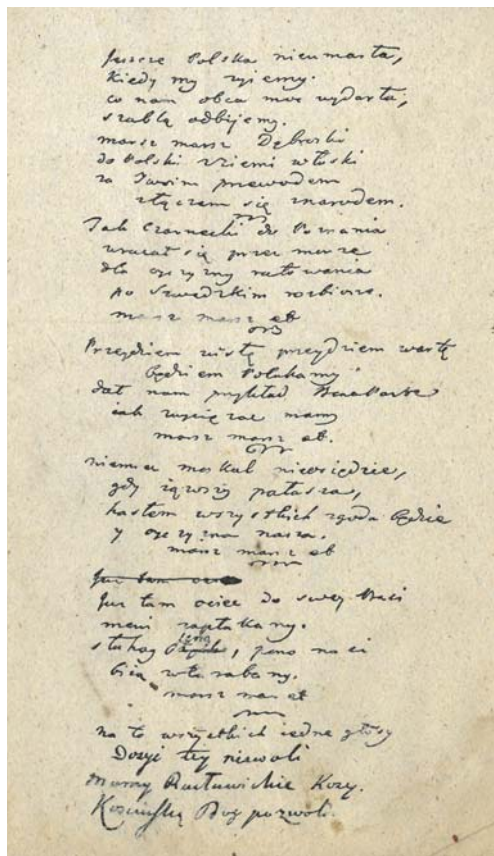 Jeszcze Polska nieumarła,
kiedy my żyiemy.
co nam obca moc wydarła,
szablą odbijemy.
marsz marsz Dąbroski
do Polski z ziemi włoski
za Twoim przewodem
złączem się znarodem.
Jak Czarnecki do Poznania
wracał się przez morze
dla oyczyzny ratowania
po Szwedzkim rozbiorze.
marsz marsz et
Przejdziem wisłę przejdziem wartę
będziem Polakamy
dał nam przykład Bonaparte
jak zwyciężać mamy
marsz marsz et.
niemiec moskal nieosiędzie,
gdy iąwszy pałasza,
hasłem wszystkich zgoda będzie
y oyczyzna nasza.
marsz marsz et
Już tam ociec
Już tam ociec do swey Basi
mowi zapłakany.
słuchay, pono nasi
biią w tarabany.
marsz marsz et
na to wszystkich iedne głosy
Dosyć tey niewoli
mamy Racławickie Kosy.
Kosciuszkę Bog pozwoli.